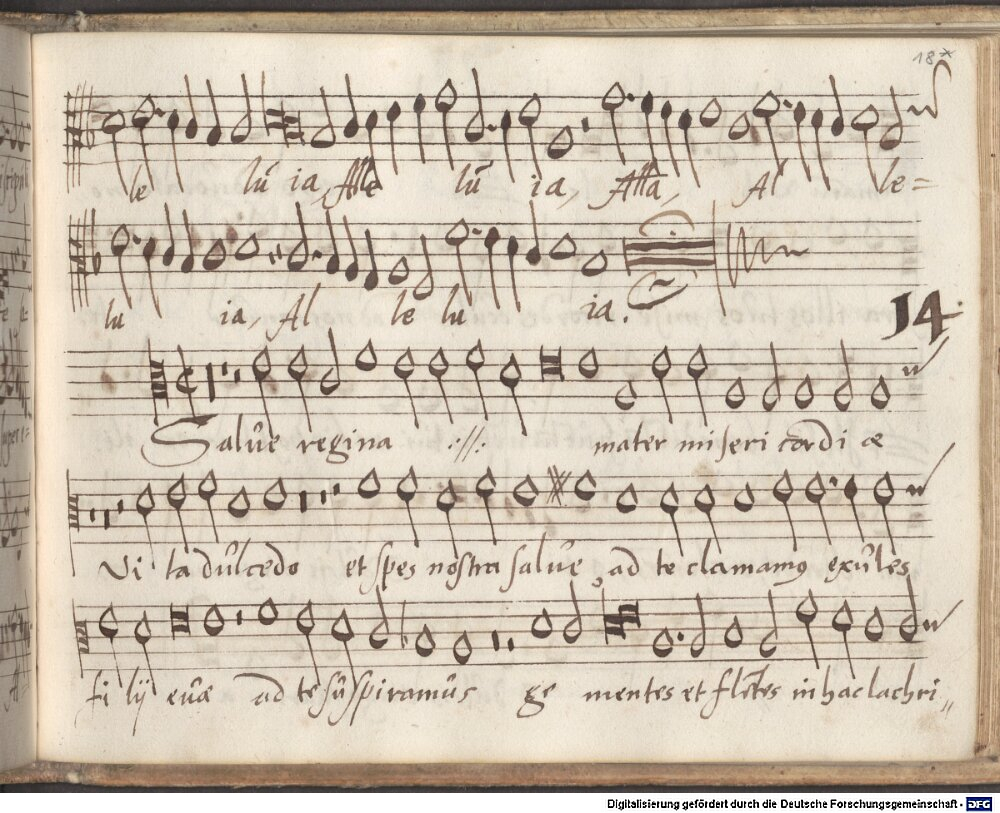 18
le lu ia, Alla lu ia, Alla, Al le=
lu ia, Al le lu ia.
14.
Salve regina :||: mater miseri cordi æ
Vi ta dulcedo et spes nostra salve, ad te clamamus exules
fi lij evæ ad te suspiramus ge mentes et flētes in hac lachri„
Digitalisierung gefördert durch die Deutsche Forschungsgemeinschaft - DFG